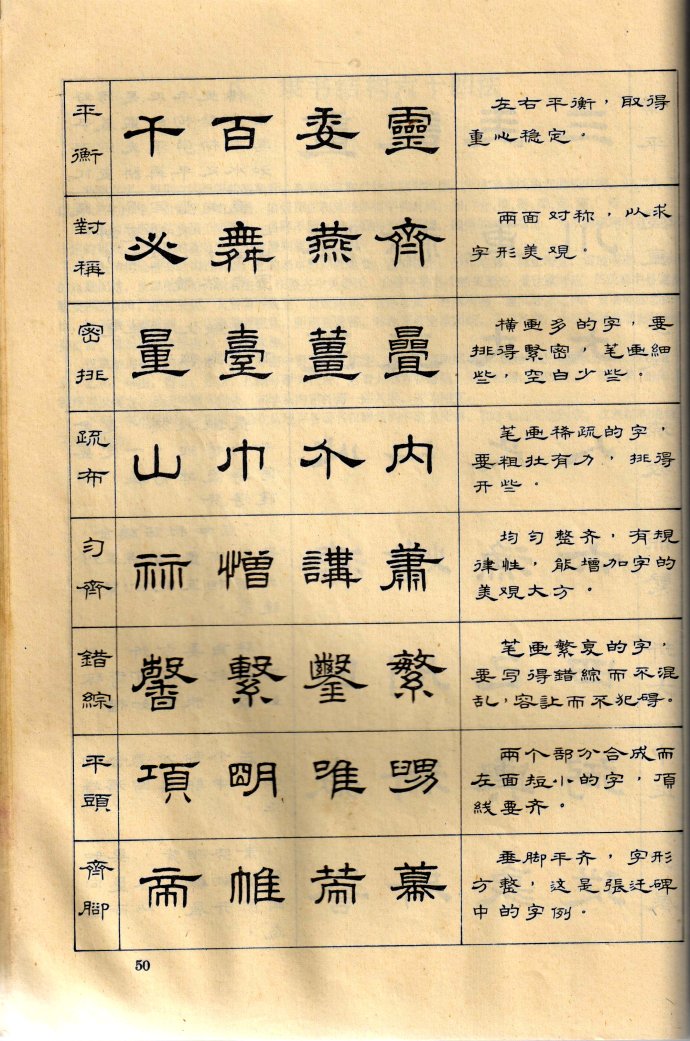 平衡
千百委靈
左右平衡，取得
重心稳定。
對稱
必舞燕齊
兩面对称，以求
字形美覌。
密排
量臺薑疊
横画多的字，要
排得繫密，笔画細
些，空白少些。
疏布
山巾介内
笔画稀疏的字，
要粗壮有力，排得
开些。
匀齊
祘憎講蕭
均匀整齐，有規
律性，能增加字的
美覌大方。
錯綜
馨繫鑿繁
笔画繁裒的字，
要写得錯綜而不混
乱，容讣而不犯碍。
平頭
項明唯
兩个部分合成而
左面短小的字，項
线要齐。
齊腳
帝帷幕
垂脚平齐，字形
方整，这是張迁碑
中的字例。
50